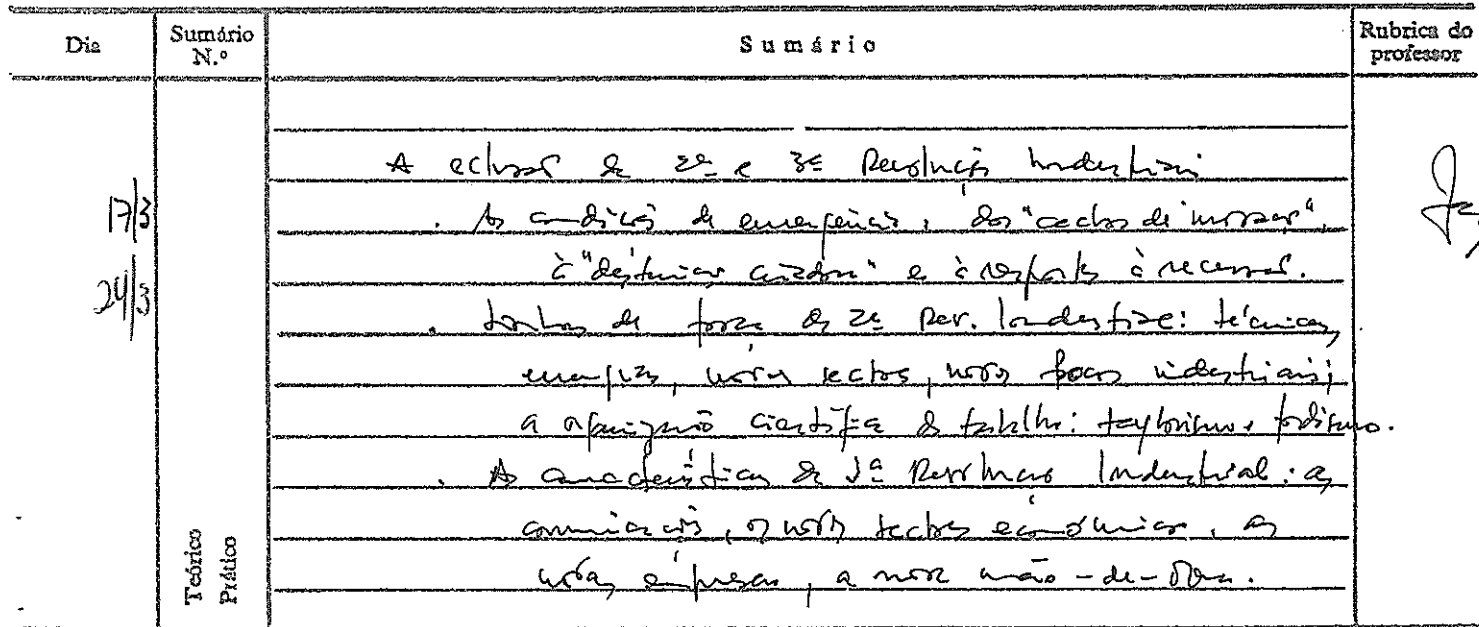 Dia
Sumário N.º
Sumário
Rubrica do professor
17/3
24/3
A eclosão da 2ª e 3ª Revolução Industriais
. As condições de emergência: dos "cachos de inovações"
à "destruição criadora" e à resposta à recessão.
. Linhas de força da 2ª Rev. Industrial: técnicas,
energias, novos sectores, novos focos industriais;
a organização científica do trabalho: taylorismo e fordismo.
. As características da 3ª Revolução Industrial: as
comunicações, os novos sectores económicos, as
novas empresas, a nova mão-de-obra.
Teórico
Prático